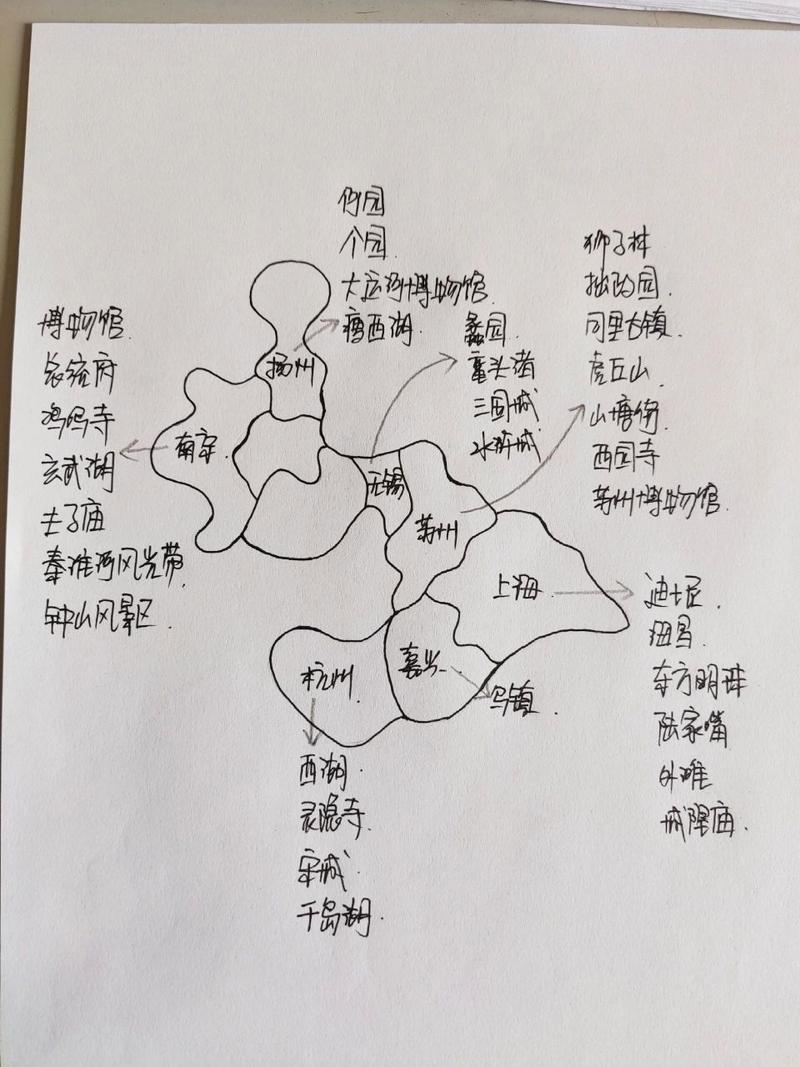 何园
个园
大运河博物馆
瘦西湖
扬州
博物馆
总统府
鸡鸣寺
玄武湖
夫子庙
秦淮河风光带
钟山风景区
南京
蠡园
鼋头渚
三国城
水浒城
无锡
狮子林
拙政园
同里古镇
虎丘山
山塘街
西园寺
苏州博物馆
苏州
上海
迪士尼
田子坊
东方明珠
陆家嘴
外滩
城隍庙
嘉兴
乌镇
杭州
西湖
灵隐寺
宋城
千岛湖